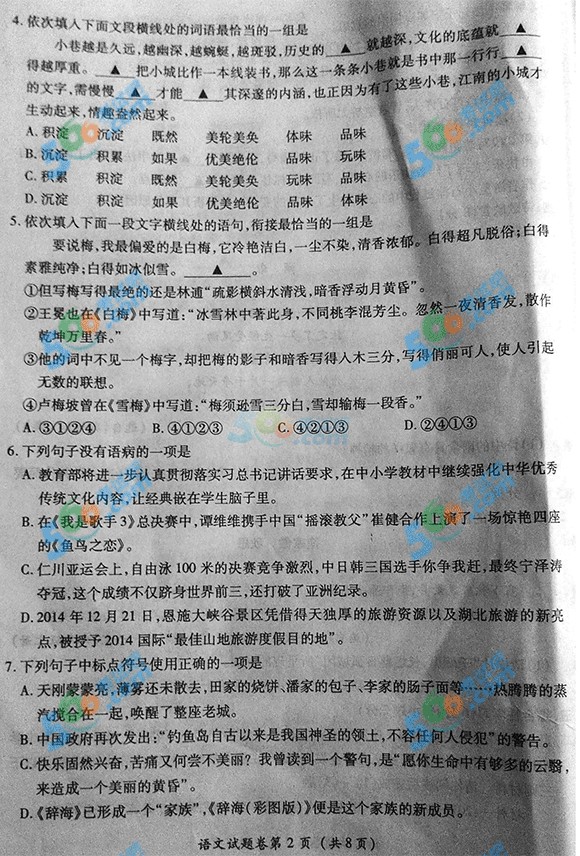 4. 依次填入下面文段横线处的词语最恰当的一组是
小巷越是久远,越幽深,越蜿蜒,越斑驳,历史的 ▲ 就越深,文化的底蕴就 ▲
得越厚重。 ▲ 把小城比作一本线装书,那么这一条条小巷就是书中那一行行 ▲
的文字,需慢慢 ▲ 才能 ▲ 其深邃的内涵,也正因为有了这些小巷,江南的小城才
生动起来,情趣盎然起来。
A. 积淀 沉淀 既然 美轮美奂 体味 品味
B. 沉淀 积累 如果 优美绝伦 品味 玩味
C. 积累 积淀 既然 美轮美奂 玩味 品味
D. 沉淀 积淀 如果 优美绝伦 品味 体味
5. 依次填入下面一段文字横线处的语句,衔接最恰当的一组是
要说梅,我最偏爱的是白梅,它冷艳洁白,一尘不染,清香浓郁。白得超凡脱俗;白得
素雅纯净;白得如冰似雪。 ▲ 。
①但写梅写得最绝的还是林逋“疏影横斜水清浅,暗香浮动月黄昏”。
②王冕也在《白梅》中写道:“冰雪林中著此身,不同桃李混芳尘。忽然一夜清香发,散作
乾坤万里春。”
③他的词中不见一个梅字,却把梅的影子和暗香写得入木三分,写得俏丽可人,使人引起
无数的联想。
④卢梅坡曾在《雪梅》中写道:“梅须逊雪三分白,雪却输梅一段香。”
A. ③①②④ B. ④①②③ C. ④②①③ D. ②④①③
6. 下列句子没有语病的一项是
A. 教育部将进一步认真贯彻落实习总书记讲话要求,在中小学教材中继续强化中华优秀
传统文化内容,让经典嵌在学生脑子里。
B. 在《我是歌手3》总决赛中,谭维维携手中国“摇滚教父”崔健合作上演了一场惊艳四座
的《鱼鸟之恋》。
C. 仁川亚运会上,自由泳100米的决赛竞争激烈,中日韩三国选手你争我赶,最终宁泽涛
夺冠,这个成绩不仅跻身世界前三,还打破了亚洲纪录。
D. 2014年12月21日,恩施大峡谷景区凭借得天独厚的旅游资源以及湖北旅游的新亮
点,被授予2014国际“最佳山地旅游度假目的地”。
7. 下列句子中标点符号使用正确的一项是
A. 天刚蒙蒙亮,薄雾还未散去,田家的烧饼、潘家的包子、李家的肠子面等……热腾腾的蒸
汽搅合在一起,唤醒了整座老城。
B. 中国政府再次发出:“钓鱼岛自古以来是我国神圣的领土,不容任何人侵犯”的警告。
C. 快乐固然兴奋,苦痛又何尝不美丽?我曾读到一个警句,是“愿你生命中有够多的云翳,
来造成一个美丽的黄昏”。
D.《辞海》已形成一个“家族”,《辞海(彩图版)》便是这个家族的新成员。
语文试题卷第2页(共8页)